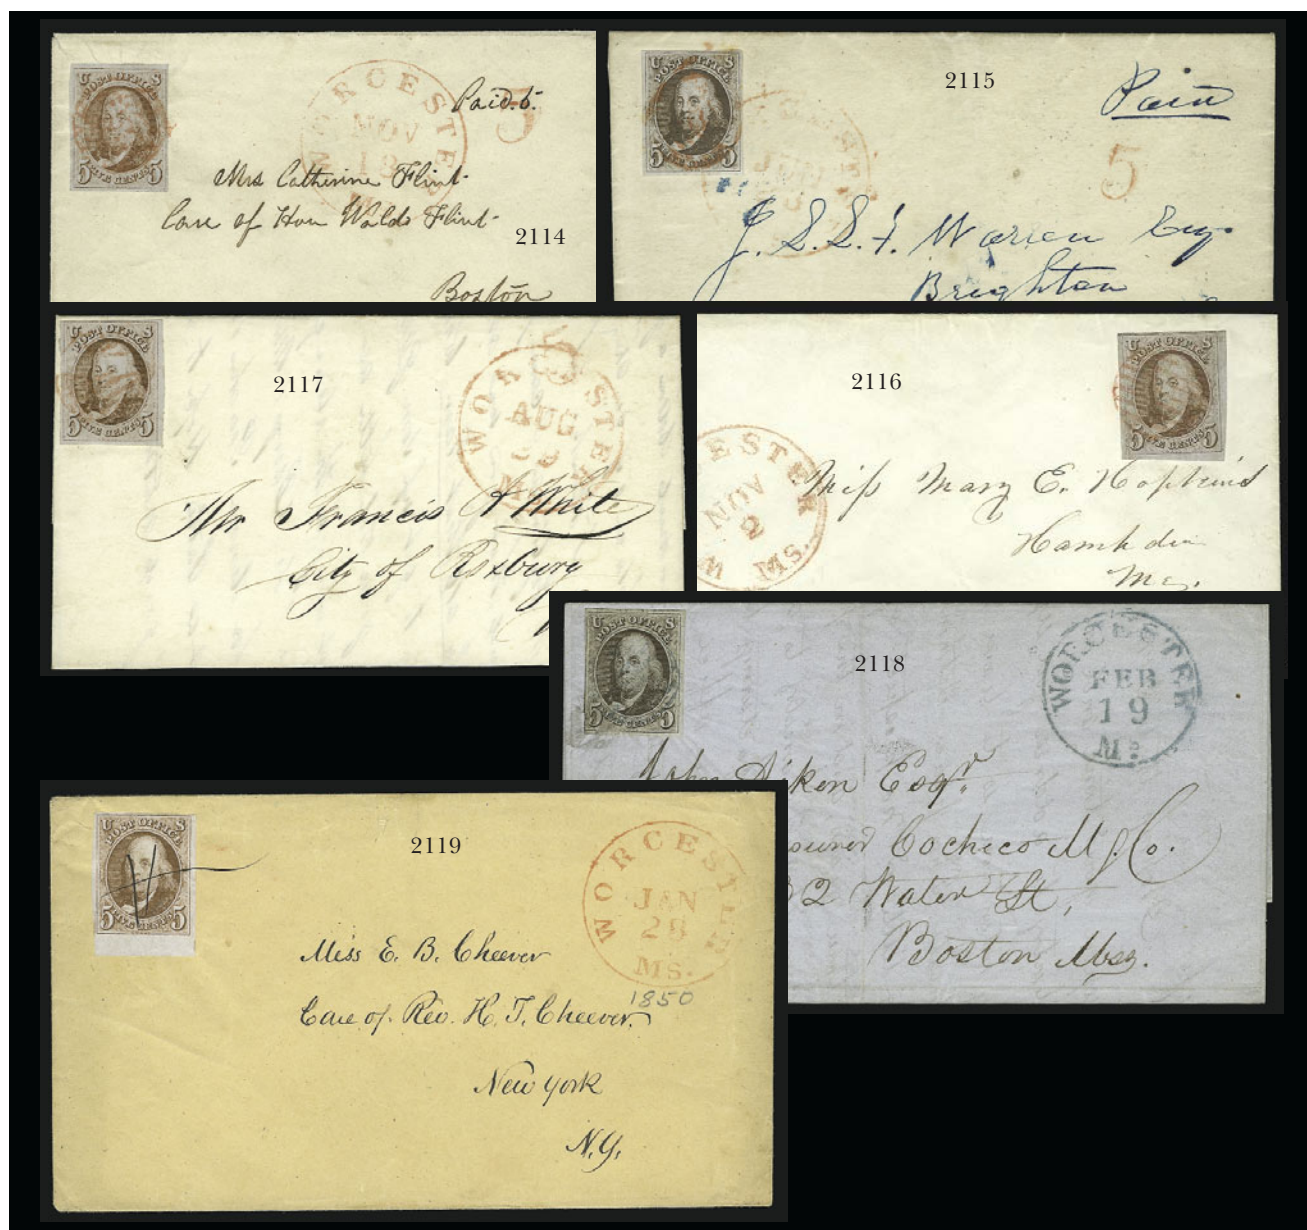 U S
POST OFFICE
5 FIVE CENTS 5
WORCESTER
NOV
18
Paid. 5.
5
Mrs Catherine Flint
Care of Hon Waldo Flint
2114
Boston
U S
POST OFFICE
5 FIVE CENTS 5
2115
Paid
5
J. S. S. F. Warren Esq.
Brighton
U S
POST OFFICE
5 FIVE CENTS 5
2117
WORCESTER
AUG
Ms.
Mr Francis A White
City of Roxbury
2116
U S
POST OFFICE
5 FIVE CENTS 5
WORCESTER
NOV
2
MS.
Miss Mary E. Hopkins
U S
POST OFFICE
5 FIVE CENTS 5
2118
WORCESTER
FEB
19
Ms
John Aiken Esqr.
Cocheco M. g. Co.
2 Water St,
Boston Mss.
U S
POST OFFICE
5 FIVE CENTS 5
2119
WORCESTER
JAN
28
MS.
1850
Miss E. B. Cheever
Care of Rev. H. T. Cheever.
New York
N.Y.